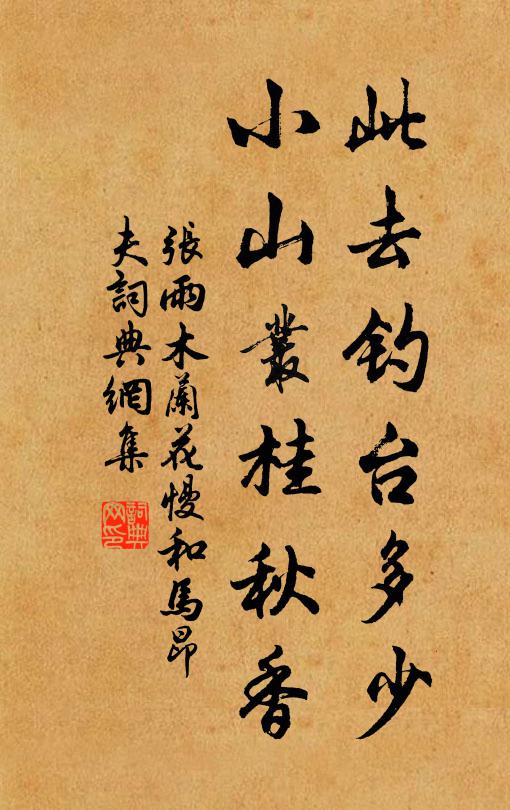 此去钓台多少
小山叢桂秋香
張雨木蘭花慢和馬昂
夫詞典網集
詞典
网印